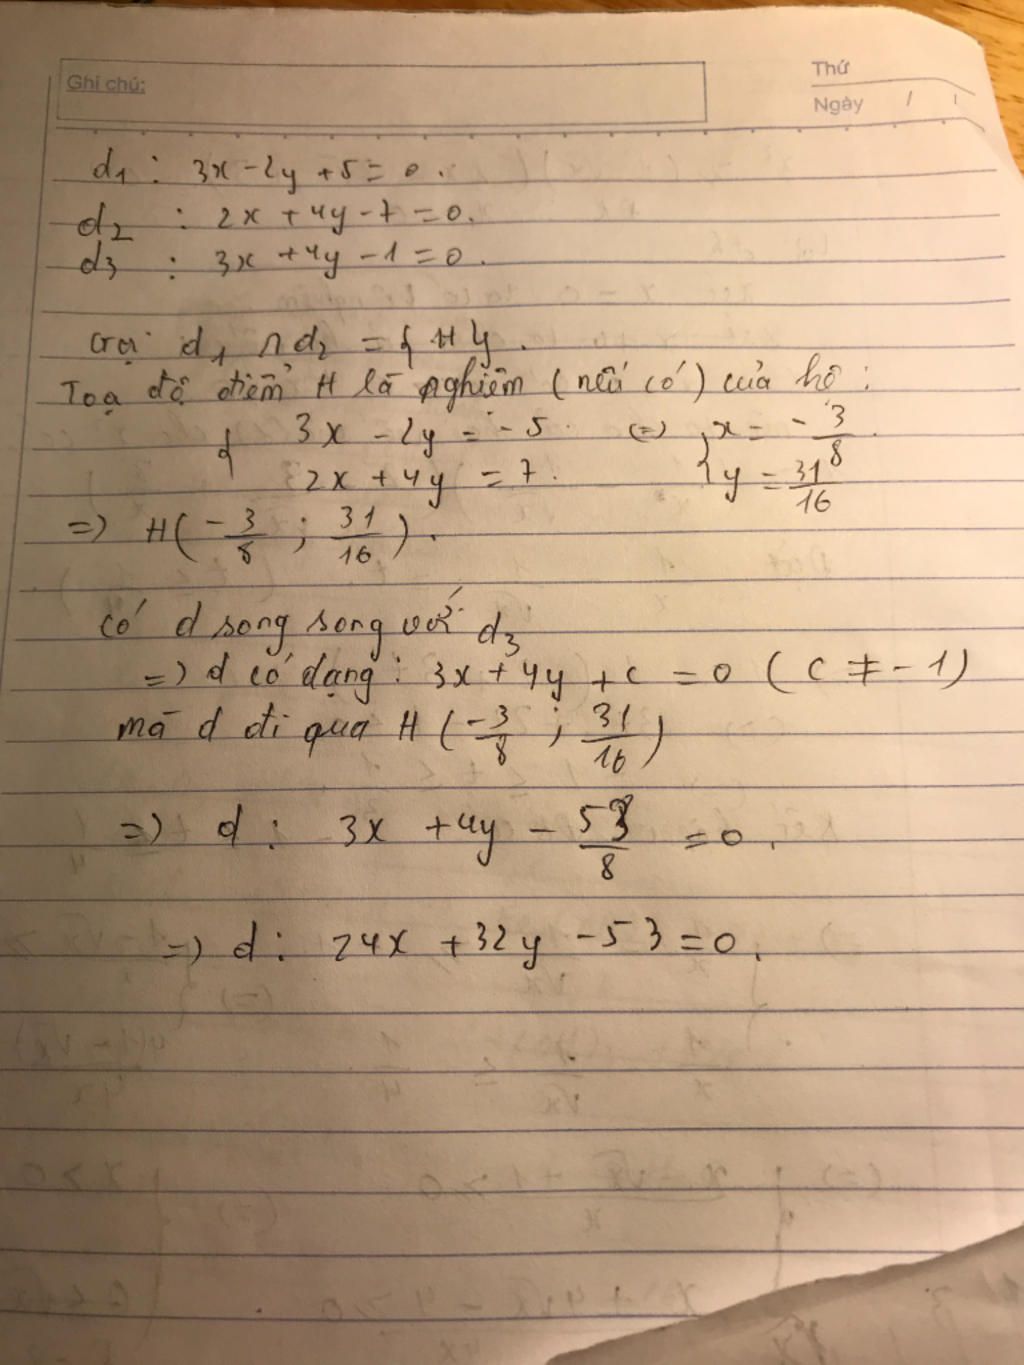 Ghi chú:
Thứ
Ngày / /
d1 : 3x - 2y + 5 = 0.
d2 : 2x + 4y - 7 = 0.
d3 : 3x + 4y - 1 = 0.
Gọi d1 ∩ d2 = {H}.
Toạ độ điểm H là nghiệm (nếu có) của hệ :
{ 3x - 2y = -5. (=) { x = -3/8.
2x + 4y = 7. y = 31/16
=) H(-3/8 ; 31/16).
có d song song với d3
=) d có dạng : 3x + 4y + c = 0 ( c ≠ -1)
mà d đi qua H (-3/8 ; 31/16)
=) d : 3x + 4y - 53/8 = 0.
=) d : 24x + 32y - 53 = 0.